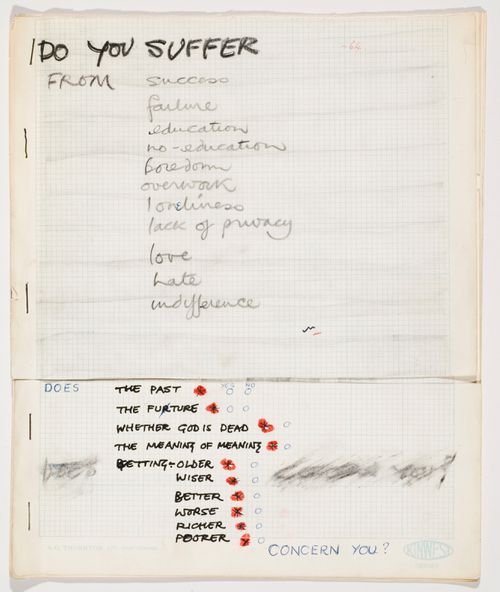 DO YOU SUFFER
-64
FROM success
failure
education
no-education
boredom
overwork
loneliness
lack of privacy
love
hate
indifference
DOES THE PAST YES NO
THE FURTURE
WHETHER GOD IS DEAD
THE MEANING OF MEANING
GETTING - OLDER
WISER
BETTER
WORSE
RICHER
POORER
CONCERN YOU?